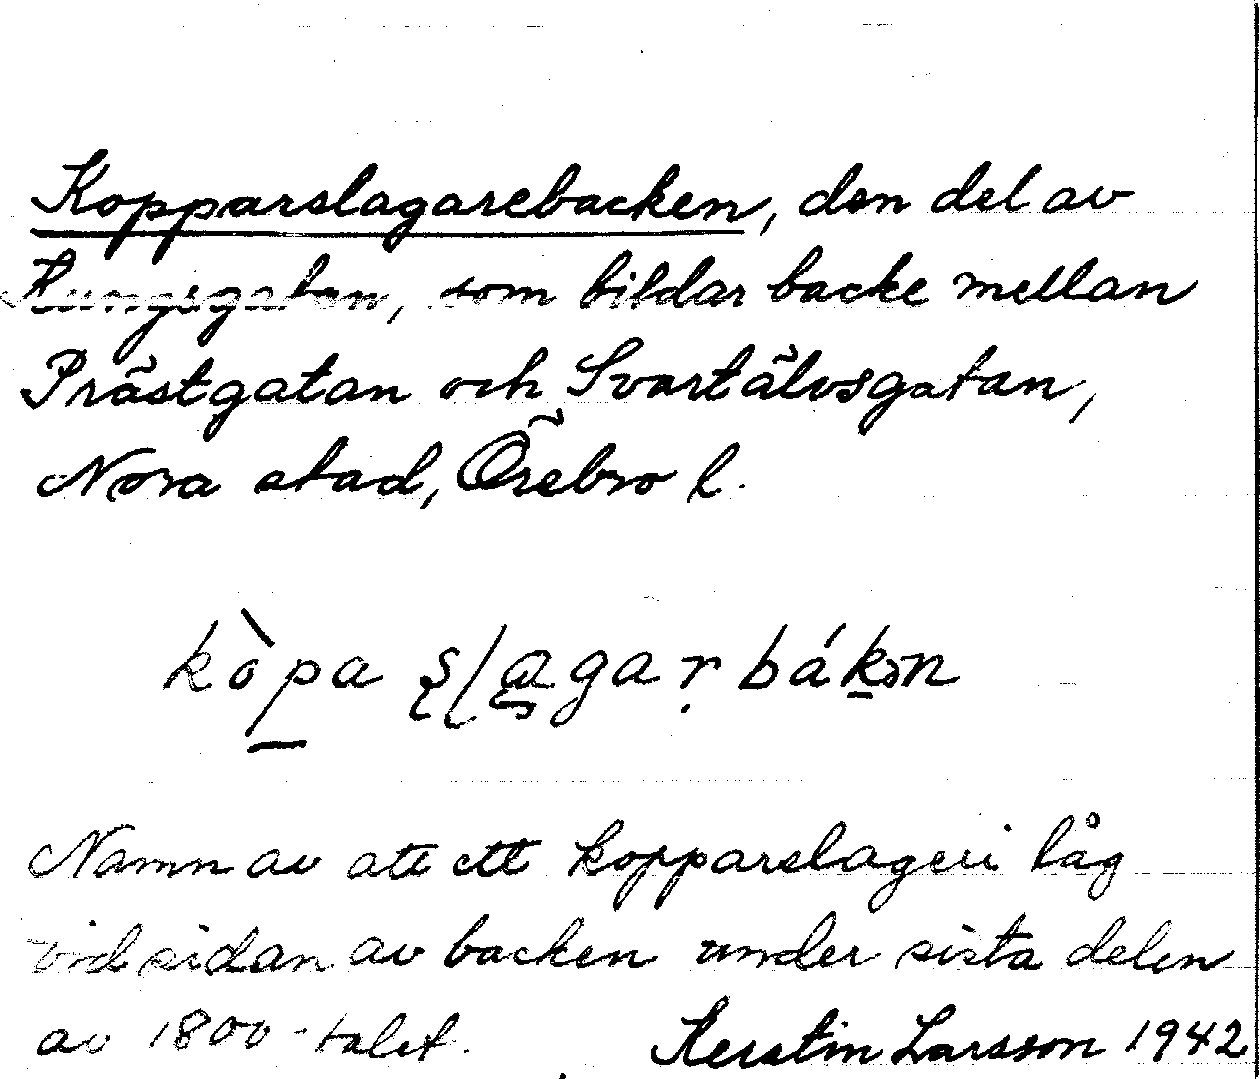 Kopparslagarebacken, den del av
Kungsgatan, som bildar backe mellan
Prästgatan och Svartälvsgatan,
Nora stad, Örebro l.
kòpa şlagaṛbákən
Namn av att ett kopparslageri låg
vid sidan av backen under sista delen
av 1800-talet. Kerstin Larsson 1942